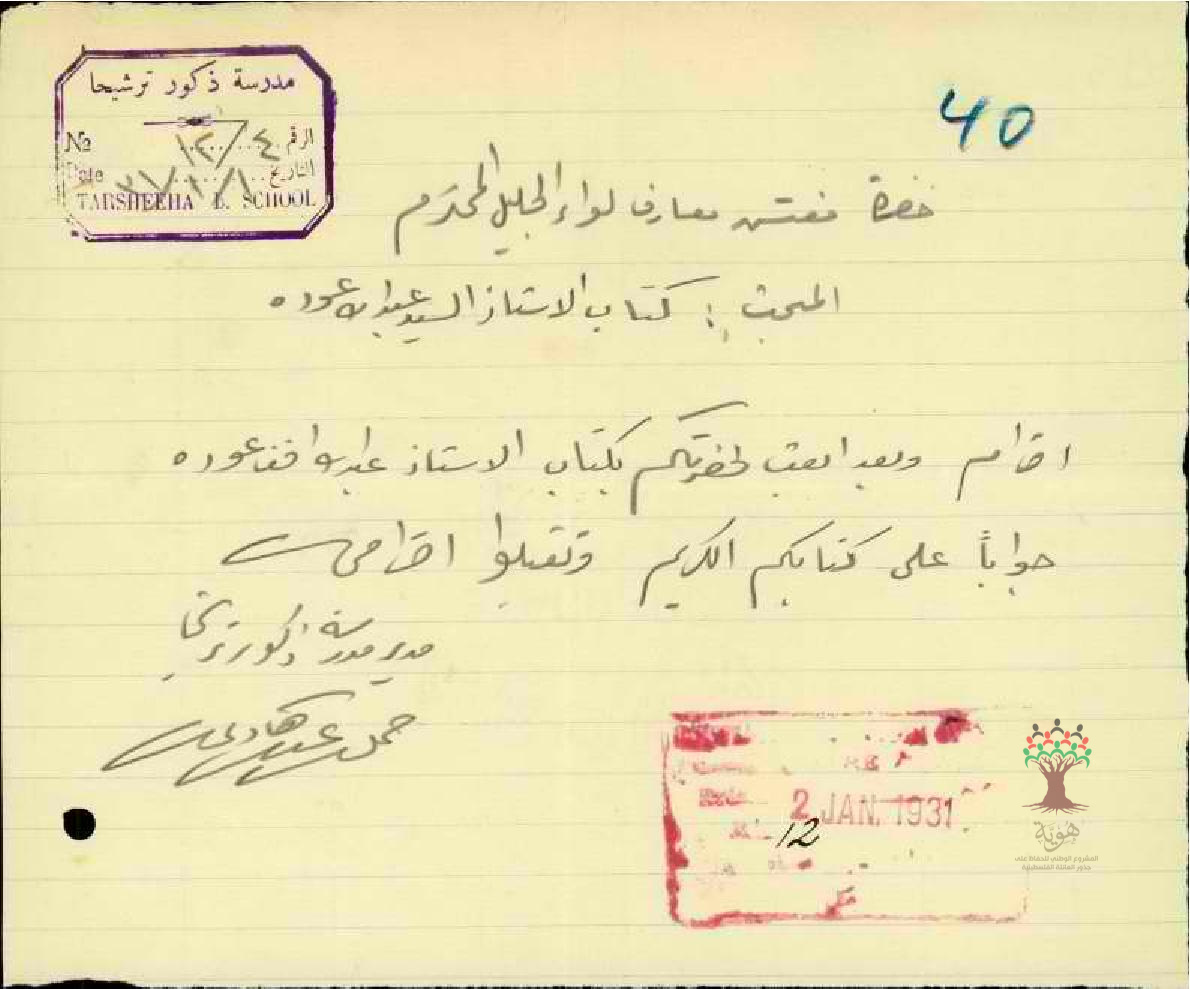 مدرسة ذكور ترشيحا
№ ١٢/٤ الرقم
Date ٣١/١/١ التاريخ
TARSHEEHA B. SCHOOL
40
حضرة مفتش معارف لواء الجليل المحترم
المبحث : كتاب الاستاذ السيد عبدالله عوده
احترام وبعد ابعث لحضرتكم بكتاب الاستاذ عبدالله افندي عوده
جواباً على كتابكم الكريم وتقبلوا احترامي
مدير مدرسة ذكور ترشيحا
2 JAN. 1931
12
هوية
المشروع الوطني للحفاظ على
جذور العائلة الفلسطينية